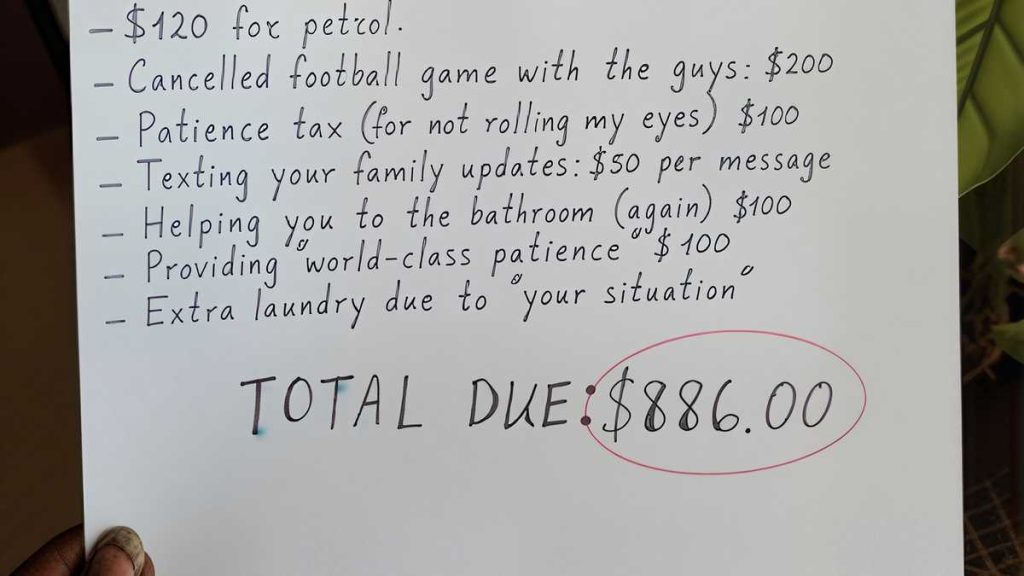 – $120 for petrol.
– Cancelled football game with the guys: $200
– Patience tax (for not rolling my eyes) $100
– Texting your family updates: $50 per message
– Helping you to the bathroom (again) $100
– Providing "world-class patience" $100
– Extra laundry due to "your situation"
TOTAL DUE: $886.00